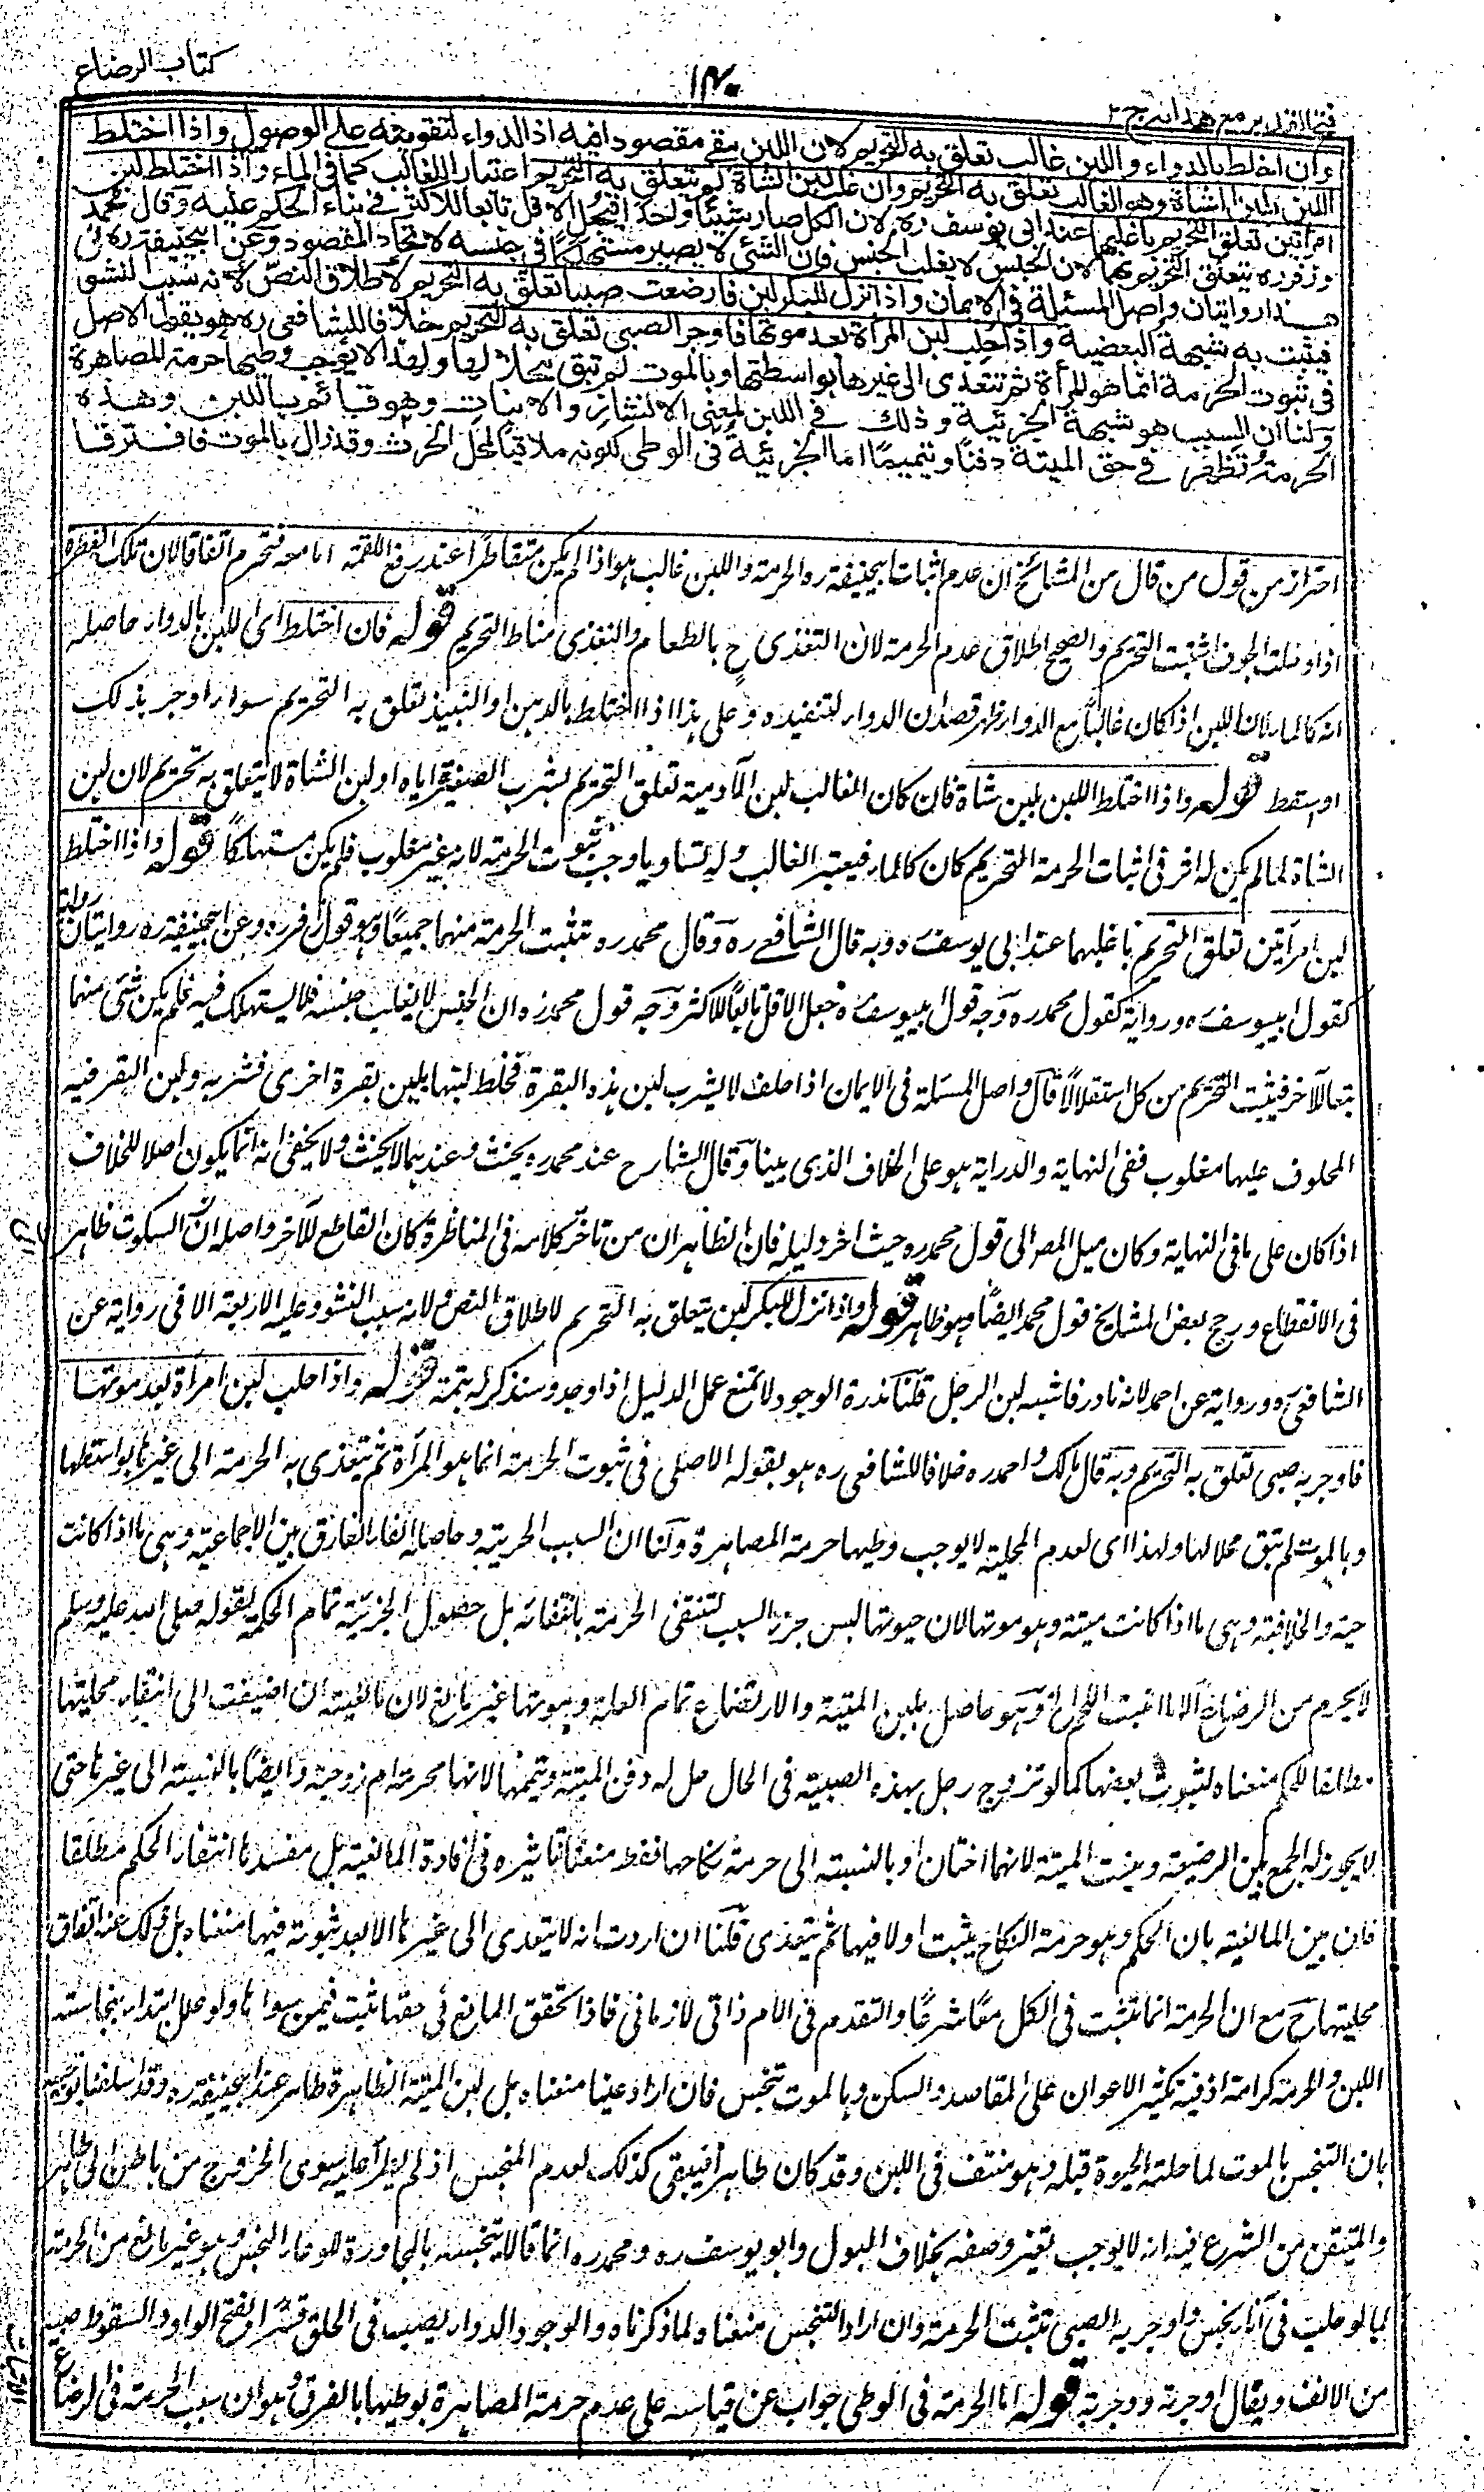 كتاب الرضاع
١٢٠
فتح القدير مع هداية ج ٢
وان اختلط بالدواء واللبن غالب تعلق به التحريم لان اللبن يبقى مقصودا فيه اذ الدواء لتقويته على الوصول واذا اختلط
اللبن بلبن الشاة وهو الغالب تعلق به التحريم وان غلب لبن الشاة لم يتعلق به التحريم اعتبارا للغالب كما فى الماء واذا اختلط لبن
امرأتين تعلق التحريم باغلبهما عند ابى يوسف ره لان الكل صار شيئا واحدا فيجعل الاقل تابعا للاكثر فى بناء الحكم عليه وقال محمد
وزفر ره يتعلق التحريم بهما لان الجنس لا يغلب الجنس فان الشئ لا يصير مستهلكا فى جنسه لاتحاد المقصود وعن ابيحنيفة ره فى
هذا روايتان واصل المسئلة فى الايمان واذا نزل للبكر لبن فارضعت صبيا تعلق به التحريم لاطلاق النص لانه سبب النشو
فيثبت به شبهة البعضية واذا حلب لبن المرأة بعد موتها فاوجر الصبى تعلق به التحريم خلافا للشافعى ره هو يقول الاصل
فى ثبوت الحرمة انما هو المرأة ثم تتعدى الى غيرها بواسطتها وبالموت لم تبق محلا لها ولهذا لا يوجب وطيها حرمة المصاهرة
ولنا ان السبب هو شبهة الجزئية وذلك فى اللبن لمعنى الانشاز والانبات وهو قائم باللبن وهذه
الحرمة تظهر فى حق الميتة دفنا وتيميما اما الجزئية فى الوطى لكونه ملاقيا لمحل الحرث وقد زال بالموت فافترقا
احتراز من قول من قال من المشائخ ان عدم اثبات ابيحنيفة ره الحرمة واللبن غالب هو اذا لم يكن متقاطرا عند رفع اللقمة اما معه فتحرم اتفاقا لان تلك القطرة
اذا وصلت الجوف اثبتت التحريم والصحيح اطلاق عدم الحرمة لان التغذى ح بالطعام والتغذى مناط التحريم قوله فان اختلط اى اللبن بالدواء حاصله
انه كالماء لان اللبن اذا كان غالبا مع الدواء ظهر قصد ان الدواء لتنفيذه وعلى هذا اذا اختلط بالدهن او النبيذ تعلق به التحريم سواء اوجر بذلك
او سقط قوله واذا اختلط اللبن بلبن شاة فان كان الغالب لبن الآدمية تعلق التحريم بشرب الصغيرة اياه او لبن الشاة لا يتعلق به تحريم لان لبن
الشاة لما لم يكن له اثر فى اثبات الحرمة التحريم كان كالماء فيعتبر الغالب ولو تساويا وجب ثبوت الحرمة لانه غير مغلوب فلم يكن مستهلكا قوله واذا اختلط
لبن امرأتين تعلق التحريم باغلبهما عند ابى يوسف ره وبه قال الشافعى ره وقال محمد ره تثبت الحرمة منهما جميعا وهو قول زفر ره وعن ابيحنيفة ره روايتان رواية
كقول ابييوسف ره ورواية كقول محمد ره وجه قول ابييوسف ره جعل الاقل تابعا للاكثر وجه قول محمد ره ان الجنس لا يغلب جنسه فلا يستهلك فيه فلم يكن شئ منهما
تبعا للآخر فيثبت التحريم من كل استقلالا قال واصل المسئلة فى الايمان اذا حلف لا يشرب لبن هذه البقرة فخلط لبنها بلبن بقرة اخرى فشربه ولبن البقر فيه
المحلوف عليها مغلوب ففى النهاية والدراية هو على الخلاف الذى بينا وقال الشارح عند محمد ره يحنث وعندهما لا يحنث ولا يخفى انه انما يكون اصلا للخلاف
اذا كان على ما فى النهاية وكان ميل المصـ الى قول محمد ره حيث اخر دليله فان الظاهر ان من تأخر كلامه فى المناظرة كان القاطع للآخر واصله ان السكوت ظاهر
فى الانقطاع ورجح بعض المشايخ قول محمد ايضا وهو ظاهر قوله واذا نزل للبكر لبن يتعلق به التحريم لاطلاق النص ولانه سبب النشو وعليه الاربعة الا فى رواية عن
الشافعى ره ورواية عن احمد لانه نادر فاشبه لبن الرجل قلنا ندرة الوجود لا تمنع عمل الدليل اذا وجد وسنذكر له تتمة قوله واذا حلب لبن امرأة بعد موتها
فاوجر به صبى تعلق به التحريم وبه قال مالك واحمد ره خلافا للشافعى ره هو يقوله الاصل فى ثبوت الحرمة انما هو المرأة ثم يتعدى به الحرمة الى غيرها بواسطتها
وبالموت لم تبق محلا لها ولهذا اى لعدم المحلية لا يوجب وطيها حرمة المصاهرة ولنا ان السبب الجزئية وحاصله الغاء الفارق بين الاجماعية وهى ما اذا كانت
حية والخلافية وهى ما اذا كانت ميتة وهو موتها لان حيوتها ليس جزء السبب لتنتفى الحرمة بانتفائه بل حصول الجزئية تمام الحكمة لقوله صلى الله عليه وسلم
لا يحرم من الرضاع الا ما انبت اللحم وهو حاصل بلبن الميتة والارتضاع تمام العلة وموتها غير مانع لان مانعيته ان اضيفت الى انتفاء محليتها
مطلقا للحكم منعناه لثبوت بعضها كما لو تزوج رجل بهذه الصبية فى الحال حل له دفن الميتة وتيممها لانها محرمة ام زوجته وايضا بالنسبة الى غيرها حتى
لا يجوز له الجمع بين الرضيعة وبنت الميتة لانهما اختان او بالنسبة الى حرمة نكاحها فقط منعنا تاثيره فى افادة المانعية بل مفسدها انتفاء الحكم مطلقا
فان بين المانعية بان الحكم وهو حرمة النكاح يثبت اولا فيها ثم يتعدى قلنا ان اردت انه لا يتعدى الى غيرها الا بعد ثبوته فيها منعناه بل ذلك عند اتفاق
محليتها ح مع ان الحرمة انما تثبت فى الكل معا شرعا والتقدم فى الام ذاتى لا زمانى فاذا تحقق المانع فى حقها ثبت فيمن سواها ولو علل ابتداء بنجاسته
اللبن والحرمة كرامة اذ فيه تكثير الاعوان على المقاصد والسكن وبالموت تنجس فان اراد عينا منعناه بل لبن الميتة الظاهرة طاهر عند ابيحنيفة ره وقد اسلفنا توجيهه
بان التنجس بالموت لما حلته الحيوة قبله وهو منتف فى اللبن وقد كان طاهرا فيبقى كذلك لعدم المنجس اذ لم يطرأ عليه سوى الخروج من باطن الى ظاهر
والمتيقن من الشرع فيه انه لا يوجب تغير وصفه بخلاف البول وابو يوسف ره ومحمد ره انما قالا بتنجسه بالمجاورة للوعاء النجس وهو غير مانع من الحرمة
كما لو حلب فى اناء نجس واوجر به الصبى تثبت الحرمة وان اراد التنجس منعناه ولما ذكرناه والوجور الدواء يصب فى الحلق قسرا بفتح الواو والسقوط صبه
من الانف ويقال اوجرته ووجرته قوله اما الحرمة فى الوطى جواب عن قياسه على عدم حرمة المصاهرة بوطيها بالفرق وهو ان سبب الحرمة فى الرضاع